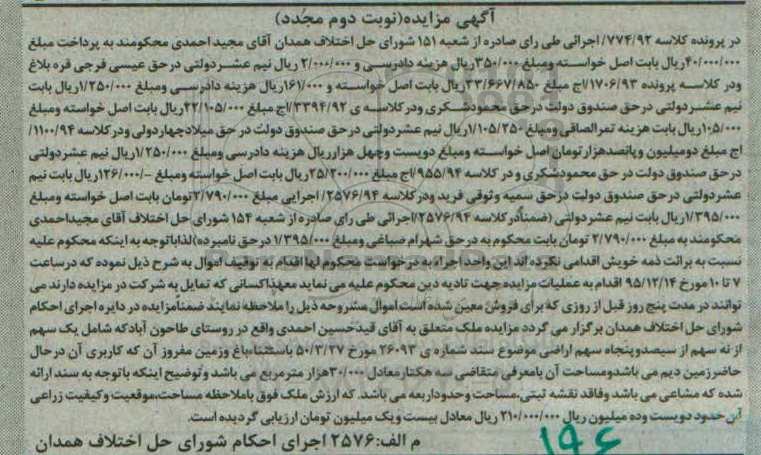 آگهی مزایده(نوبت دوم مجدد)
در پرونده کلاسه ۷۷۴/۹۲/ اجرائی طی رای صادره از شعبه ۱۵۱ شورای حل اختلاف همدان آقای مجید احمدی محکومند به پرداخت مبلغ
۴۰/۰۰۰/۰۰۰ریال بابت اصل خواسته ومبلغ ۳۵۰/۰۰۰ریال هزینه دادرسی و ۲/۰۰۰/۰۰۰ ریال نیم عشردولتی درحق عیسی فرجی قره بلاغ
ودر کلاسه پرونده ۱۷۰۶/۹۳/اج مبلغ ۳۳/۶۶۷/۸۵۰ریال بابت اصل خواسته و ۱۶۱/۰۰۰ریال هزینه دادرسی ومبلغ ۱/۲۵۰/۰۰۰ریال بابت
نیم عشردولتی درحق صندوق دولت درحق محمودشکری ودرکلاسه ی ۳۳۹۴/۹۲/اج مبلغ ۲۲/۱۰۵/۰۰۰ریال بابت اصل خواسته ومبلغ
۱۰۵/۰۰۰ریال بابت هزینه تمرالصاقی ومبلغ ۱/۱۰۵/۲۵۰ریال نیم عشردولتی درحق صندوق دولت در حق میلادچهاردولی ودرکلاسه ۱۱۰۰/۹۴/
اج مبلغ دومیلیون وپانصدهزارتومان اصل خواسته ومبلغ دویست وچهل هزارریال هزینه دادرسی ومبلغ ۱/۲۵۰/۰۰۰ریال نیم عشردولتی
درحق صندوق دولت در حق محمودشکری و در کلاسه ۹۵۵/۹۴/اج مبلغ ۲۵/۲۰۰/۰۰۰ریال بابت اصل خواسته ومبلغ -/۱۲۶/۰۰۰ریال بابت نیم
عشردولتی درحق صندوق دولت درحق سمیه وثوقی فرید ودرکلاسه ۲۵۷۶/۹۴/ اجرایی مبلغ ۲/۷۹۰/۰۰۰تومان بابت اصل خواسته ومبلغ
۱/۳۹۵/۰۰۰ریال بابت نیم عشردولتی (ضمناًدرکلاسه ۲۵۷۶/۹۴/اجرائی طی رای صادره از شعبه ۱۵۴ شورای حل اختلاف آقای مجیداحمدی
محکومند به مبلغ ۲/۷۹۰/۰۰۰ تومان بابت محکوم به درحق شهرام صباغی ومبلغ ۱/۳۹۵/۰۰۰ درحق نامبرده)لذاباتوجه به اینکه محکوم علیه
نسبت به برائت ذمه خویش اقدامی نکرده اند این واحد اجراء به درخواست محکوم لها اقدام به توقیف اموال به شرح ذیل نموده که درساعت
۷ تا ۱۰ مورخ ۹۵/۱۲/۱۴ اقدام به عملیات مزایده جهت تادیه دین محکوم علیه می نماید معهذاکسانی که تمایل به شرکت در مزایده دارند می
توانند در مدت پنج روز قبل از روزی که برای فروش معین شده است اموال مشروحه ذیل را ملاحظه نمایند ضمناًمزایده در دایره اجرای احکام
شورای حل اختلاف همدان برگزار می گردد مزایده ملک متعلق به آقای قیدحسین احمدی واقع در روستای طاحون آبادکه شامل یک سهم
از نه سهم از سیصدوپنجاه سهم اراضی موضوع سند شماره ی ۲۶۰۹۳ مورخ ۵۰/۳/۲۷ باستثناءباغ وزمین مفروز آن که کاربری آن درحال
حاضرزمین دیم می باشدومساحت آن بامعرفی متقاضی سه هکتارمعادل ۳۰/۰۰۰هزار مترمربع می باشد وتوضیح اینکه باتوجه به سند ارائه
شده که مشاعی می باشد وفاقد نقشه ثبتی،مساحت وحدوداربعه می باشد. که ارزش ملک فوق باملاحظه مساحت،موقعیت وکیفیت زراعی
آن حدود دویست وده میلیون ریال ۲۱۰/۰۰۰/۰۰۰ ریال معادل بیست ویک میلیون تومان ارزیابی گردیده است.
م الف:۲۵۷۶ اجرای احکام شورای حل اختلاف همدان
۱۹۶